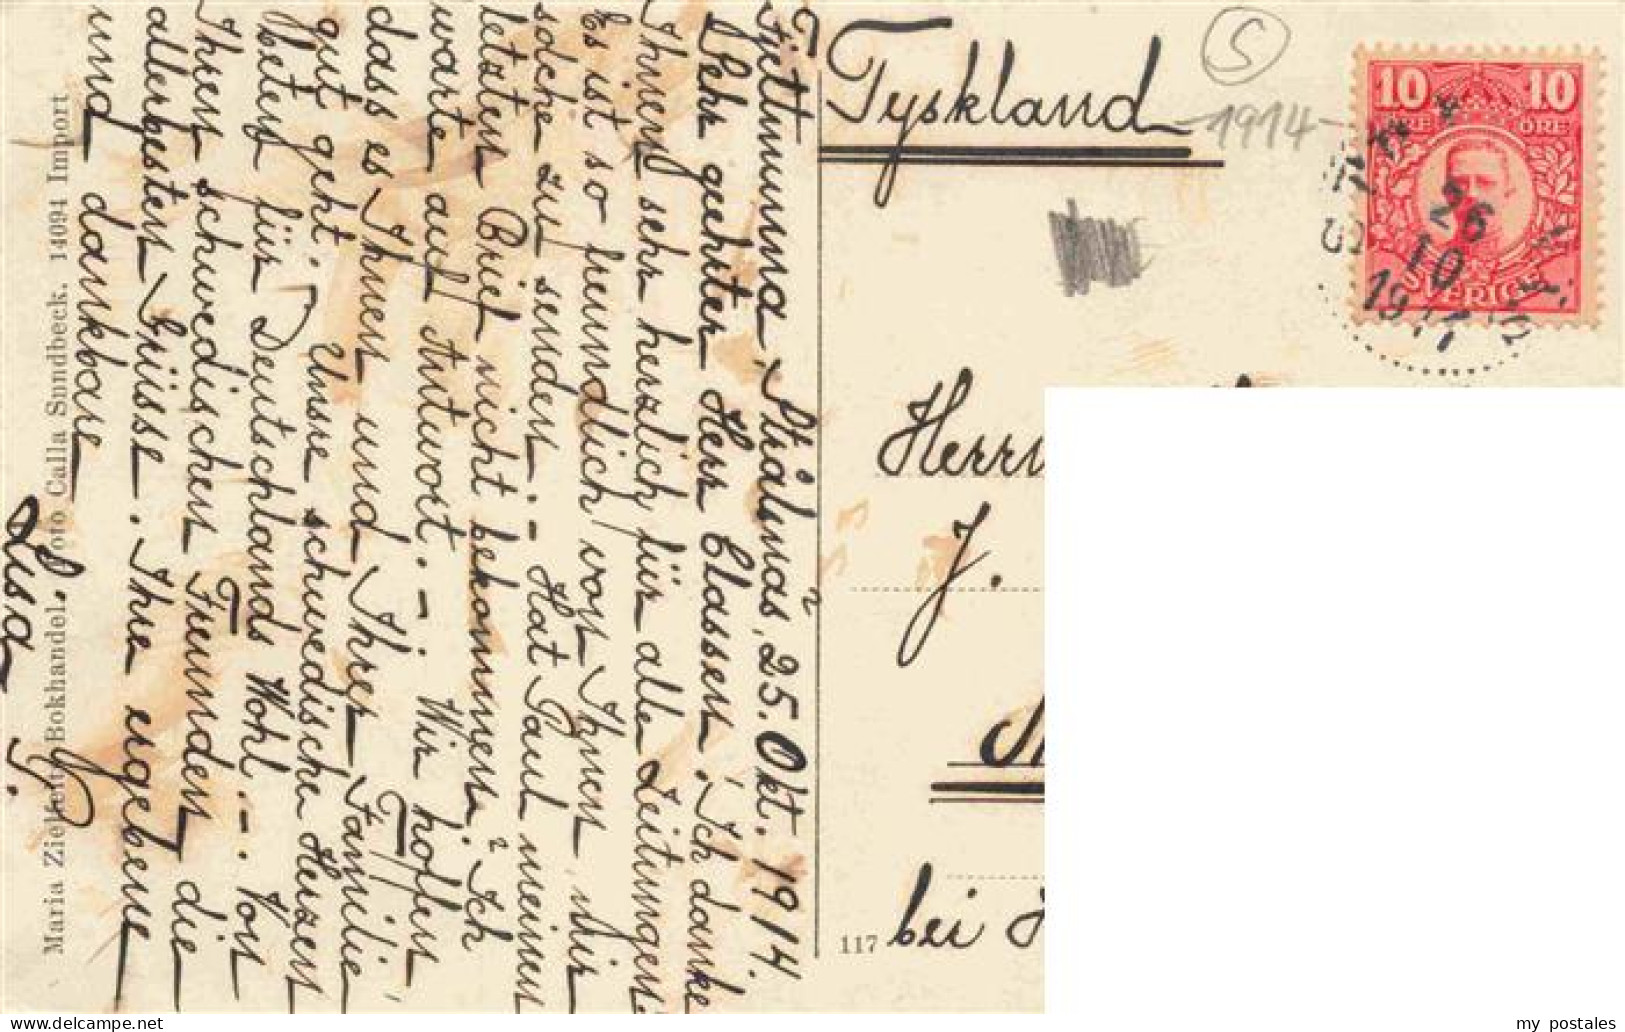 Fjettmunna, Strålsnäs, 25. Okt. 1914.
Sehr geehrter Herr Classen! Ich danke
Ihnen sehr herzlich für alle Zeitungen.
Es ist so freundlich von Ihnen, mir
solche zu senden. - Hat Paul meinen
letzten Brief nicht bekommen? Ich
warte auf Antwort. - Wir hoffen,
dass es Ihnen und Ihrer Familie
gut geht. Unsre schwedische Herzen
beten für Deutschlands Wohl. - Von
Ihren schwedischen Freunden die
allerbesten Grüsse. Ihre ergebene
und dankbare
Lisa
Maria Bokhandel. Foto Calla Sundbeck. 14094 Import
Tyskland
S
1914
10 10
ÖRE ÖRE
SVERIGE
26
10
19
Herrn
J.
117
bei
my postales